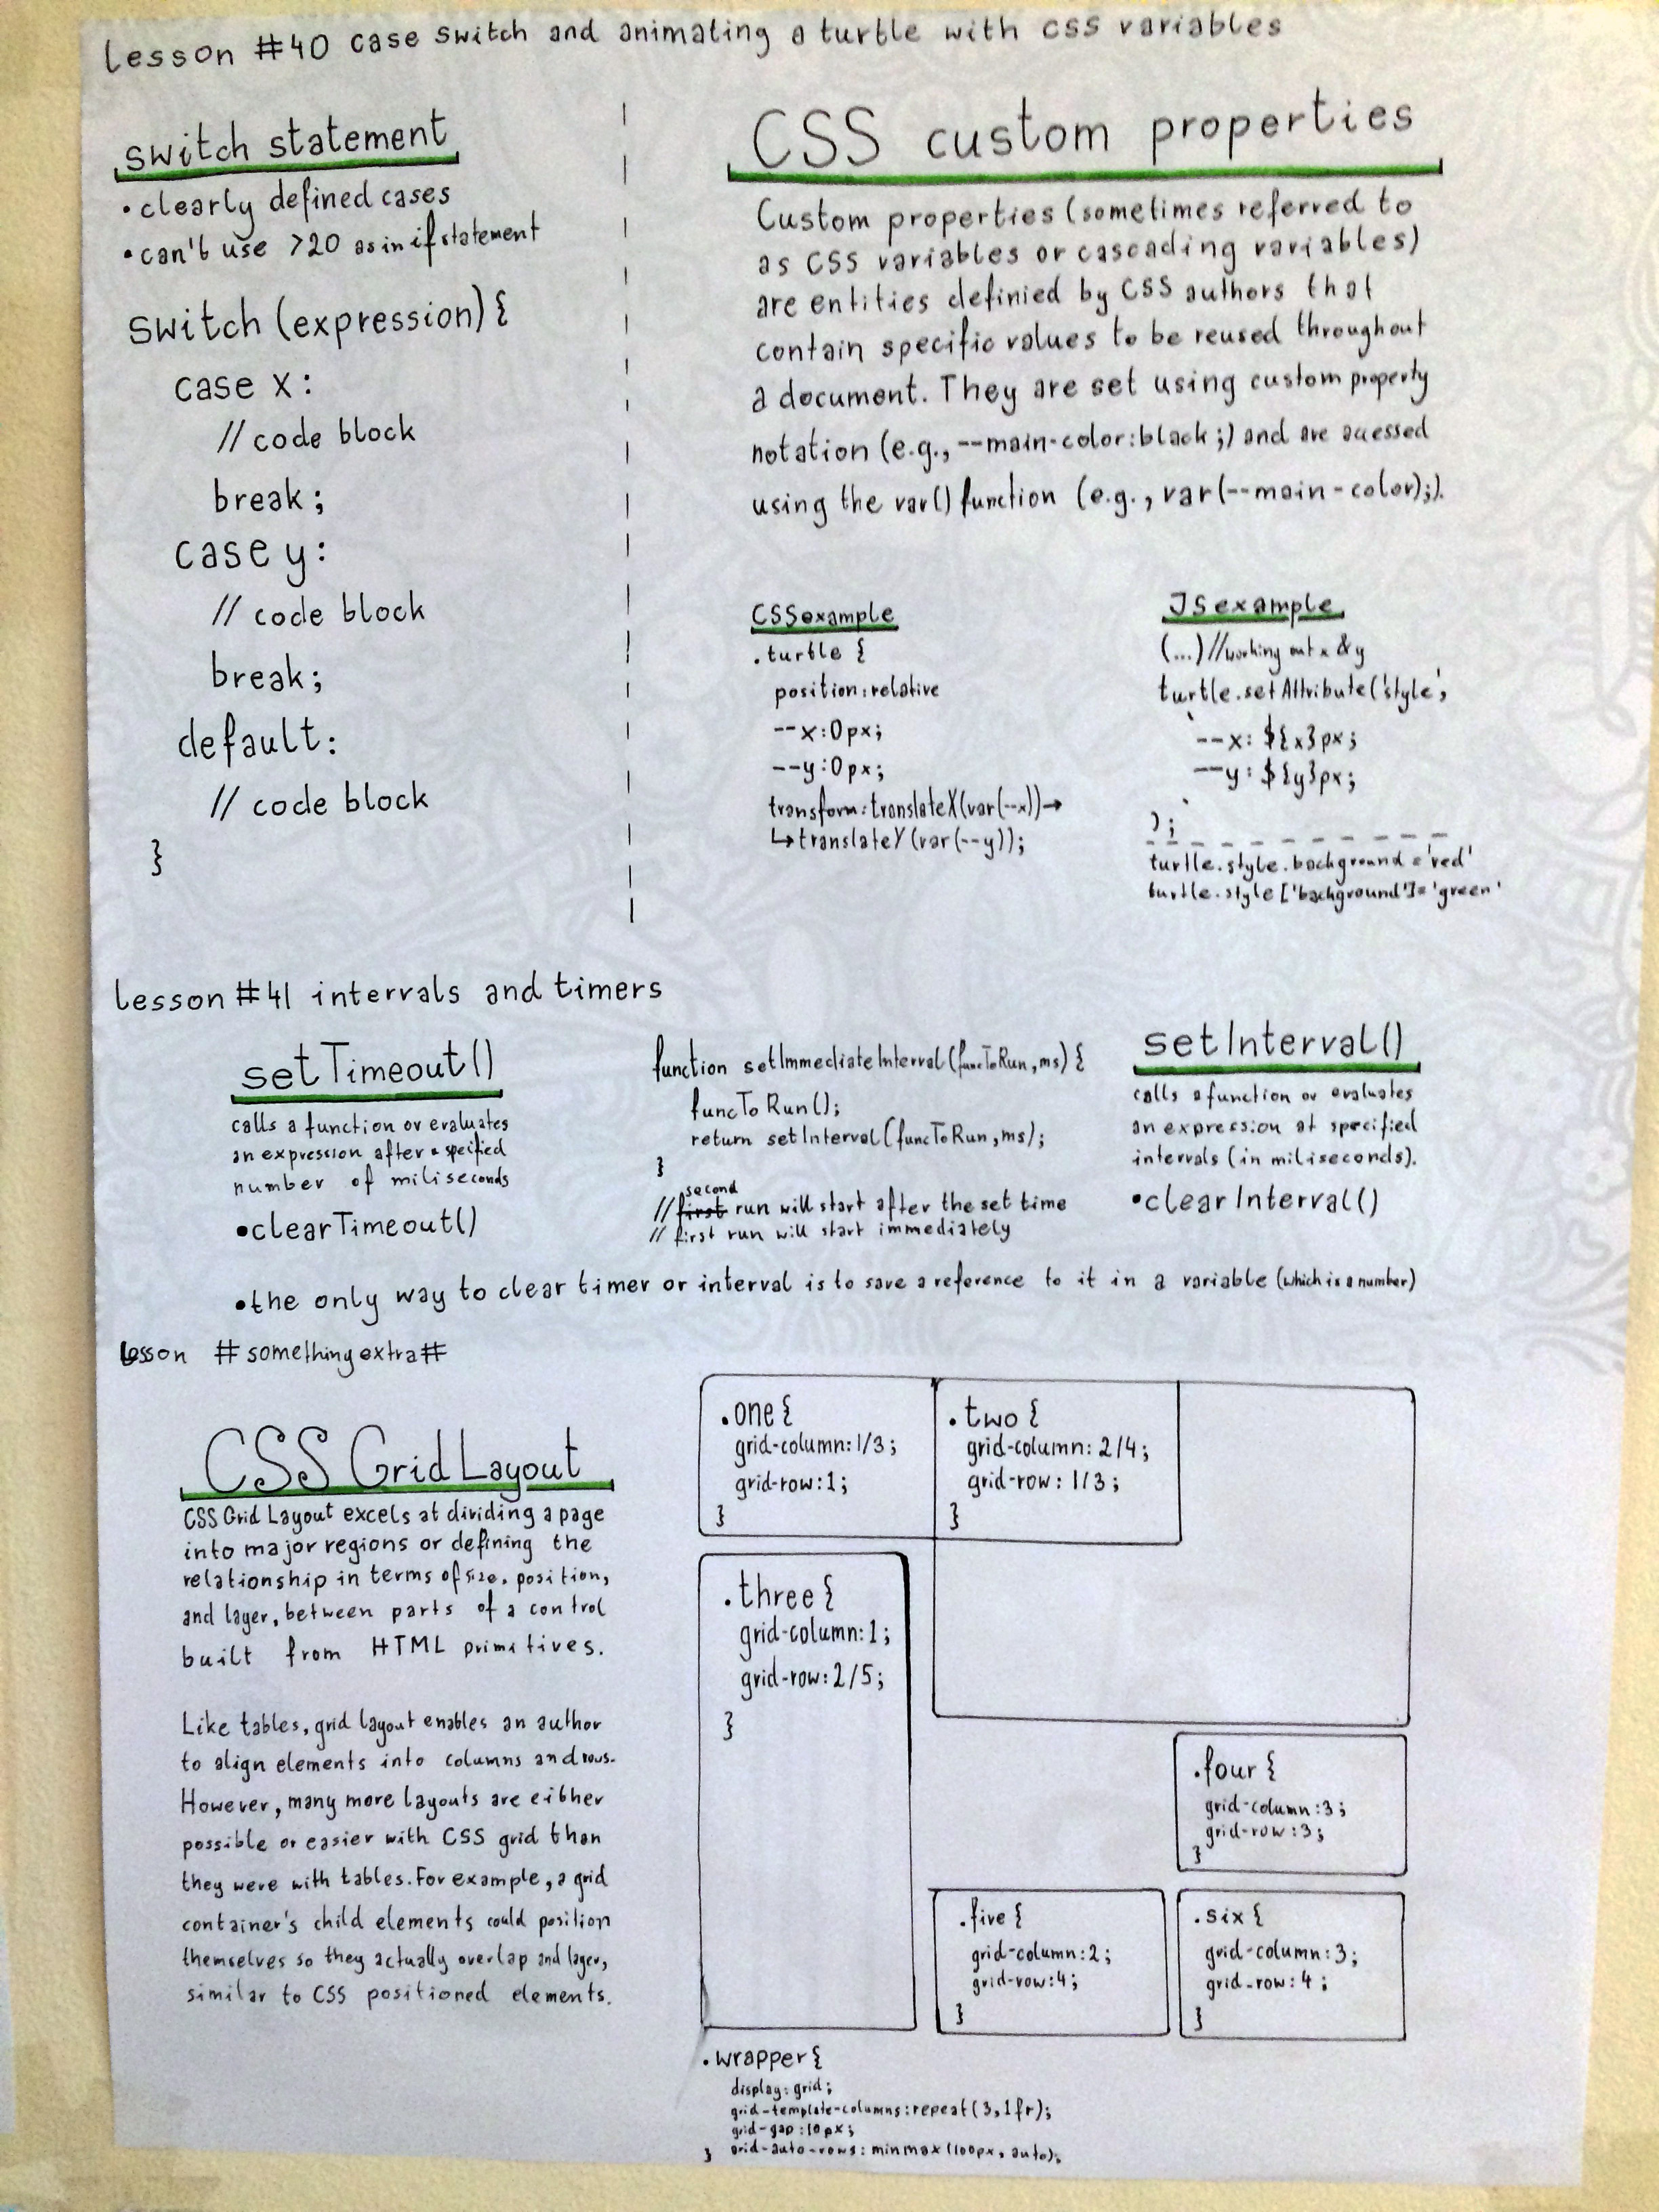 lesson #40 case switch and animating a turtle with css variables
switch statement
• clearly defined cases
• can't use >20 as in if statement
switch (expression) {
case x:
// code block
break;
case y:
// code block
break;
default:
// code block
}
CSS custom properties
Custom properties (sometimes referred to
as CSS variables or cascading variables)
are entities definied by CSS authors that
contain specific values to be reused throughout
a document. They are set using custom property
notation (e.g., --main-color:black;) and are acessed
using the var() function (e.g., var(--main-color);).
CSS example
.turtle {
position:relative
--x:0px;
--y:0px;
transform:translateX(var(--x))→
↳translateY(var(--y));
JS example
(...) //working out x & y
turtle.setAttribute('style',
`
--x: ${x}px;
--y: ${y}px;
`
);
turtle.style.background = 'red'
turtle.style['background']= 'green'
lesson #41 intervals and timers
setTimeout()
calls a function or evaluates
an expression after a specified
number of miliseconds
• clearTimeout()
function setImmediateInterval(funcToRun,ms) {
funcToRun();
return setInterval(funcToRun,ms);
}
second
// first run will start after the set time
// first run will start immediately
setInterval()
calls a function or evaluates
an expression at specified
intervals (in miliseconds).
• clearInterval()
• the only way to clear timer or interval is to save a reference to it in a variable (which is a number)
lesson #something extra#
CSS Grid Layout
CSS Grid Layout excels at dividing a page
into major regions or defining the
relationship in terms of size, position,
and layer, between parts of a control
built from HTML primitives.
Like tables, grid layout enables an author
to align elements into columns and rows.
However, many more layouts are either
possible or easier with CSS grid than
they were with tables. For example, a grid
container's child elements could position
themselves so they actually overlap and layer,
similar to CSS positioned elements.
.one {
grid-column: 1/3;
grid-row: 1;
}
.two {
grid-column: 2/4;
grid-row: 1/3;
}
.three {
grid-column: 1;
grid-row: 2/5;
}
.four {
grid-column: 3;
grid-row: 3;
}
.five {
grid-column: 2;
grid-row: 4;
}
.six {
grid-column: 3;
grid-row: 4;
}
.wrapper {
display: grid;
grid-template-columns: repeat(3,1fr);
grid-gap: 10px;
grid-auto-rows: minmax(100px, auto);
}